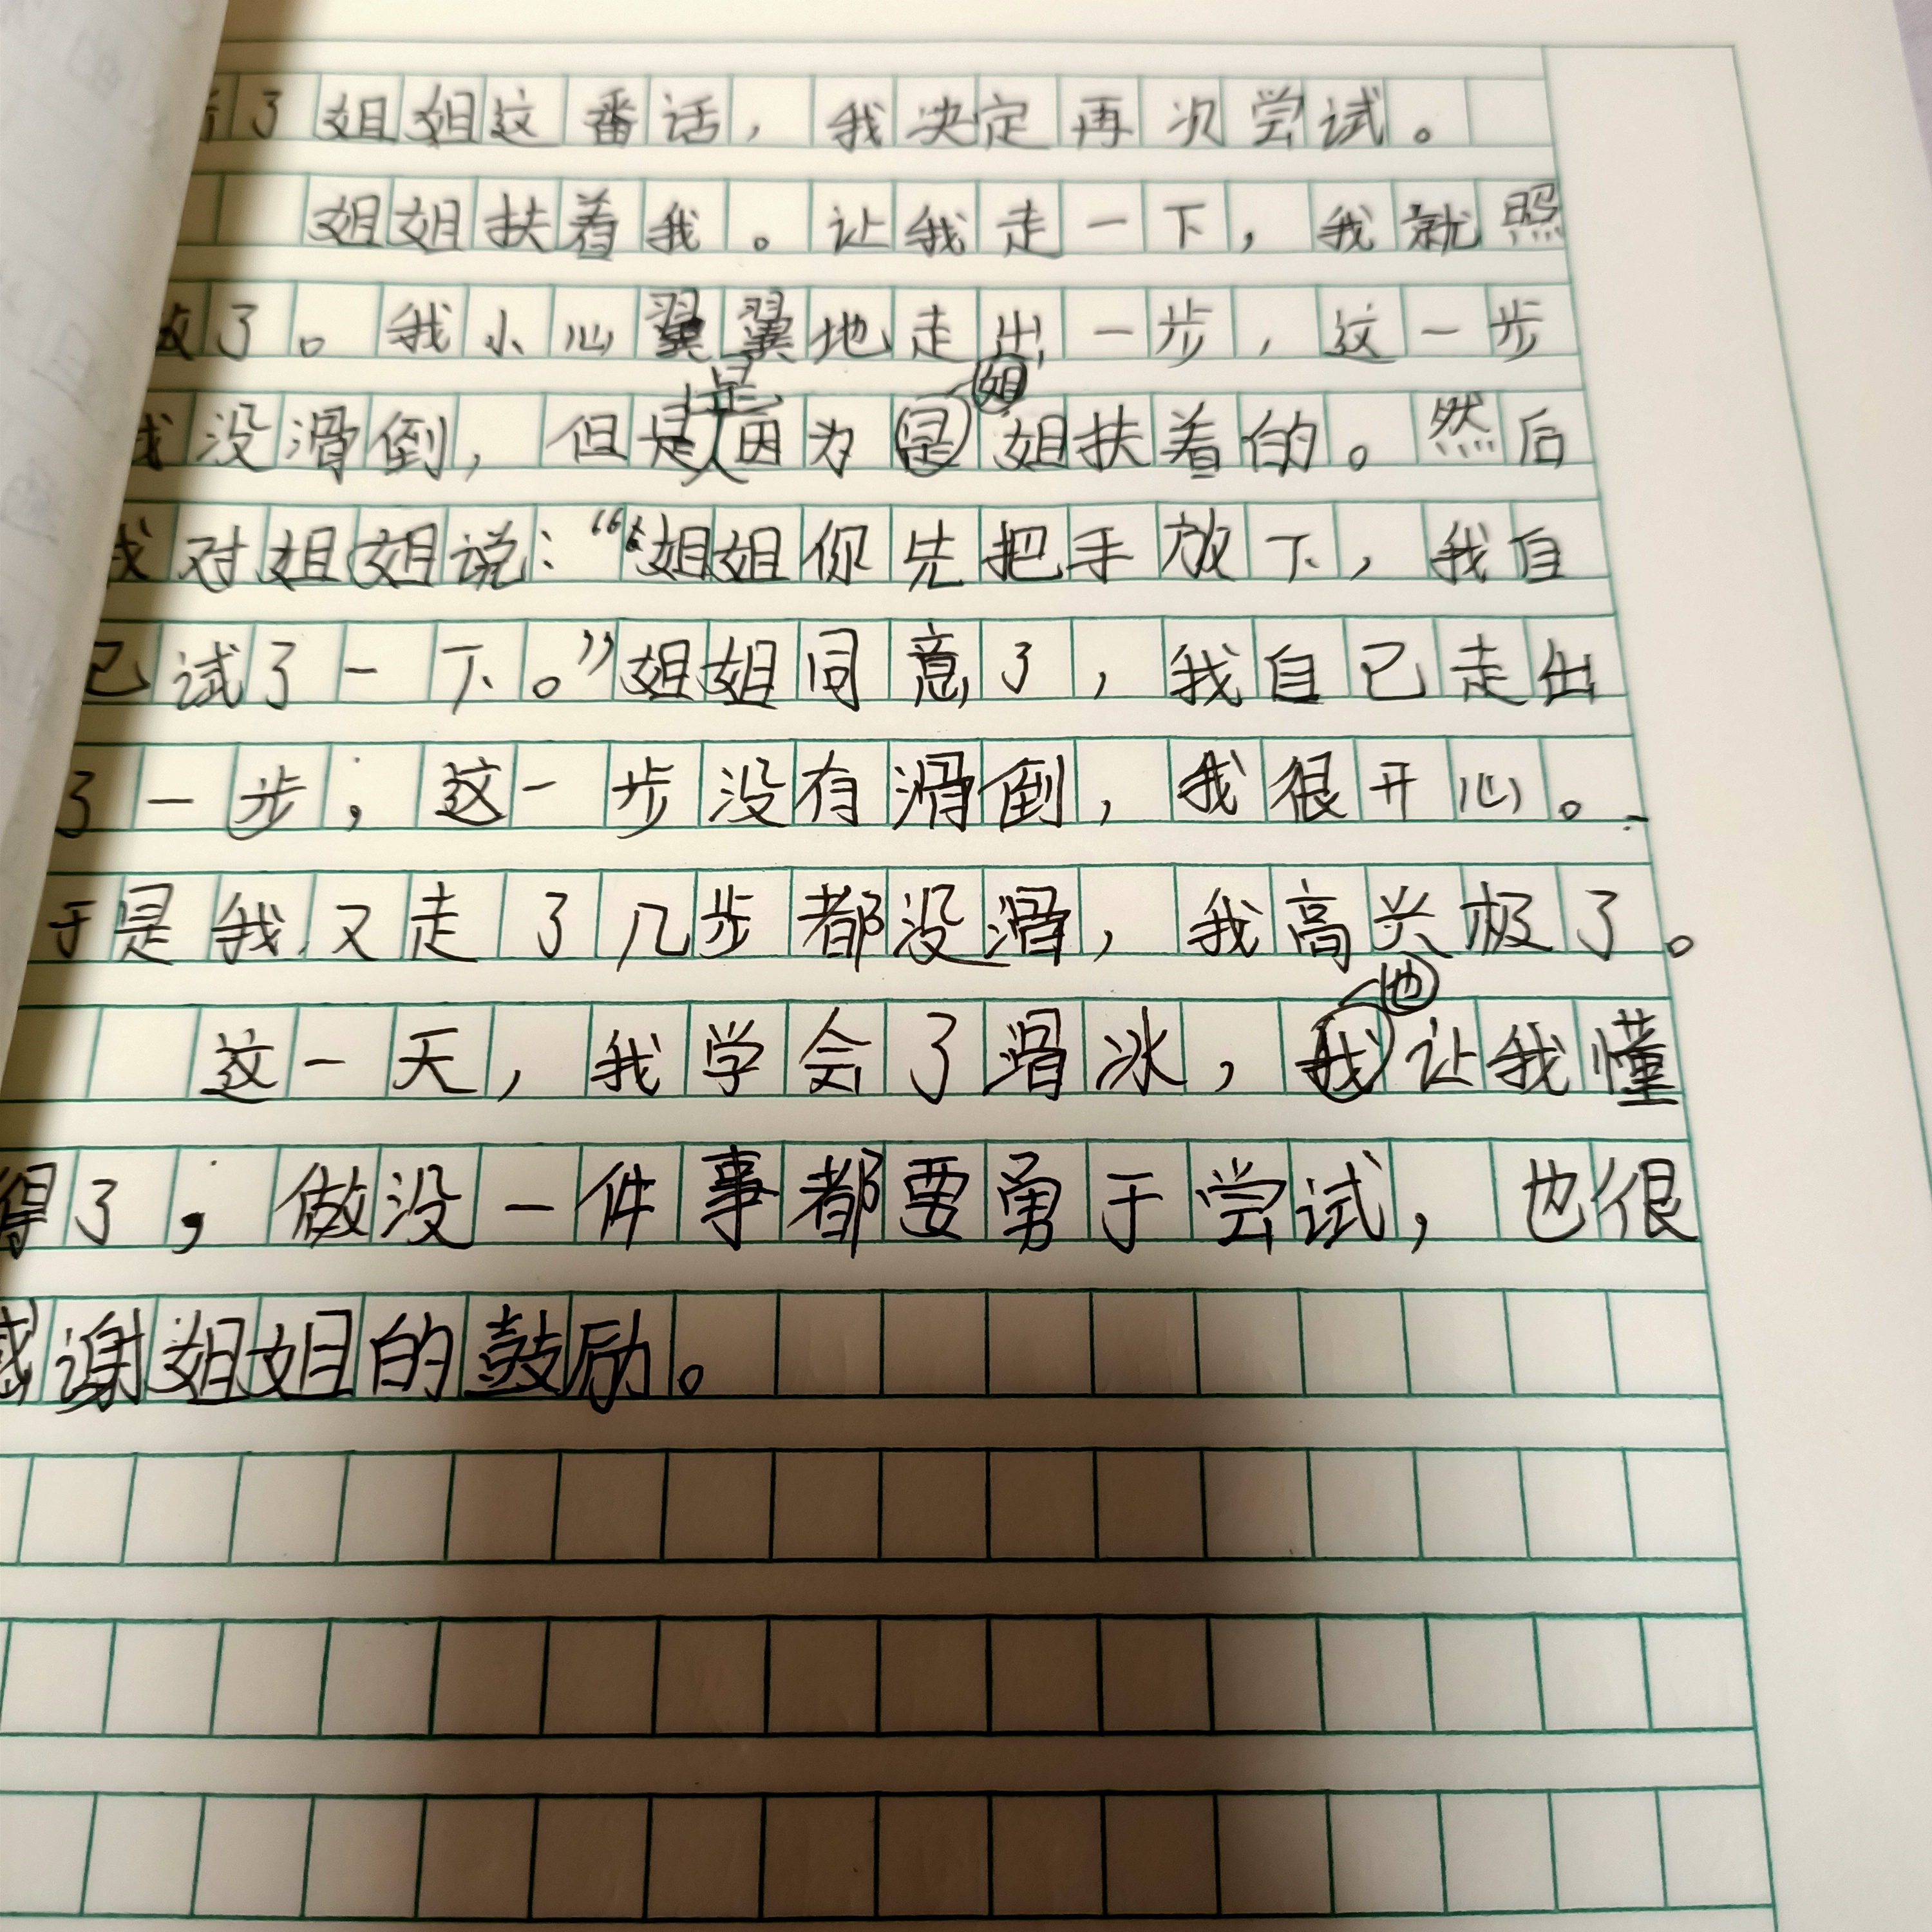 了姐姐这番话，我决定再次尝试。
姐姐扶着我。让我走一下，我就照
做了。我小心翼翼地走出一步，这一步
我没滑倒，但是是因为姐姐扶着的。然后
我对姐姐说：“姐姐你先把手放下，我自
己试了一下。”姐姐同意了，我自己走出
了一步；这一步没有滑倒，我很开心。
于是我又走了几步都没滑，我高兴极了。
这一天，我学会了滑冰，他让我懂
得了，做没一件事都要勇于尝试，也很
感谢姐姐的鼓励。